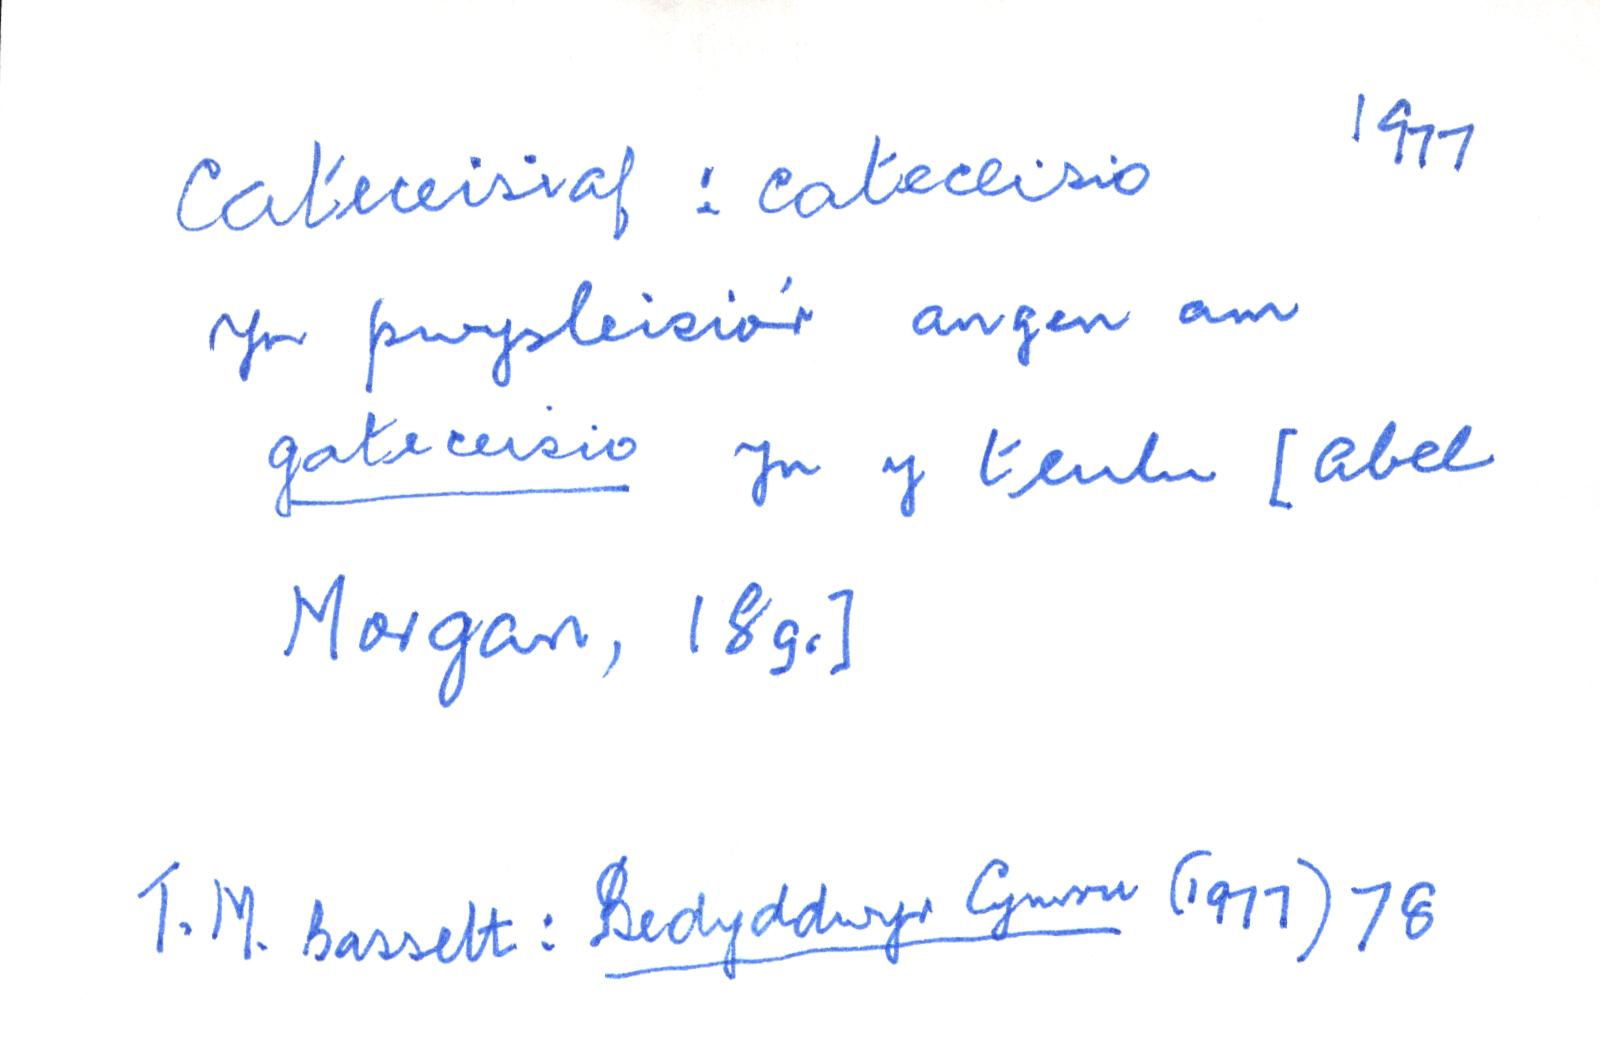 1977
Cateceisiaf : cateceisio
yn pwysleisio'r angen am
gateceisio yn y teulu [Abel
Morgan, 18g.]
T. M. Bassett : Bedyddwyr Cymru (1977) 78